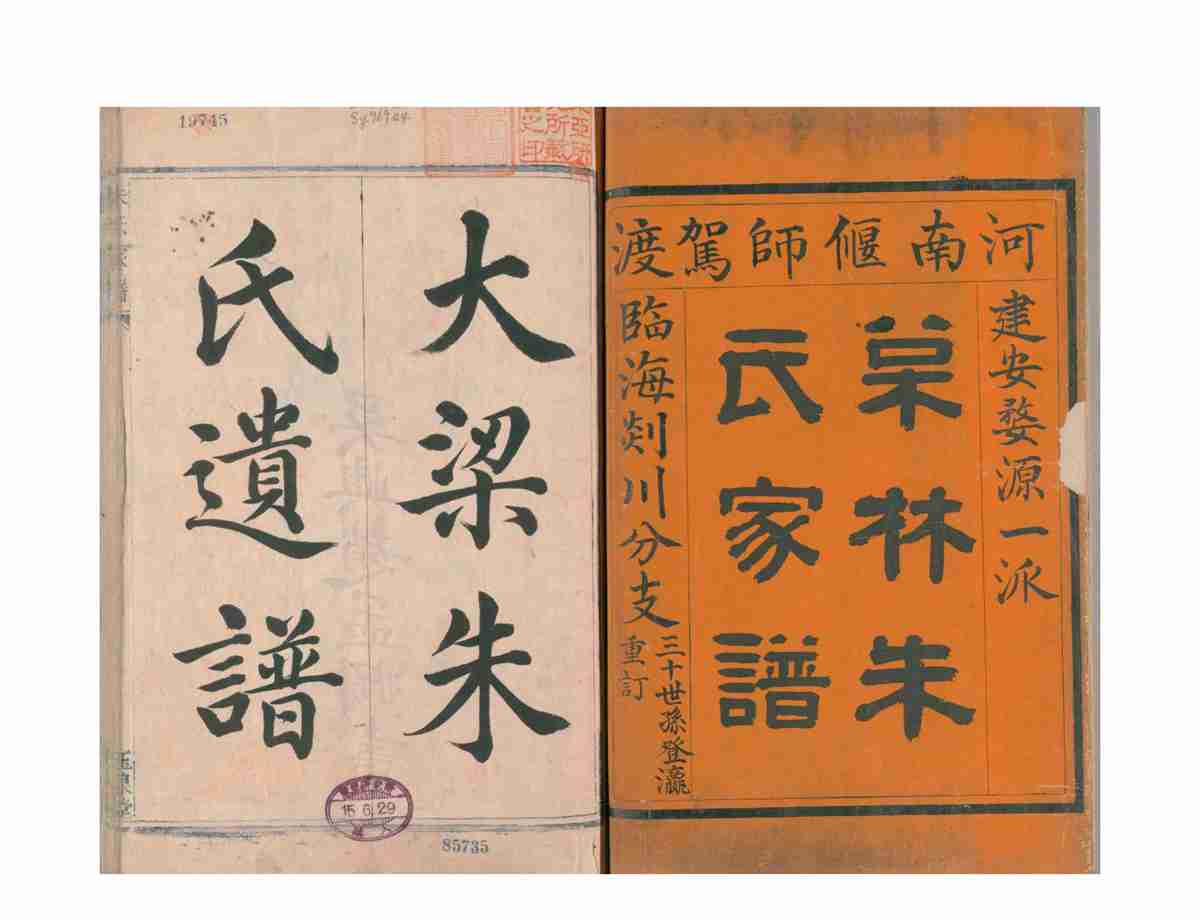 河南偃師駕渡
建安婺源一派
菓林朱
氏家譜
臨海剡川分支三十世孫登瀛重訂
19745
大梁朱
氏遺譜
15.6.29
85735